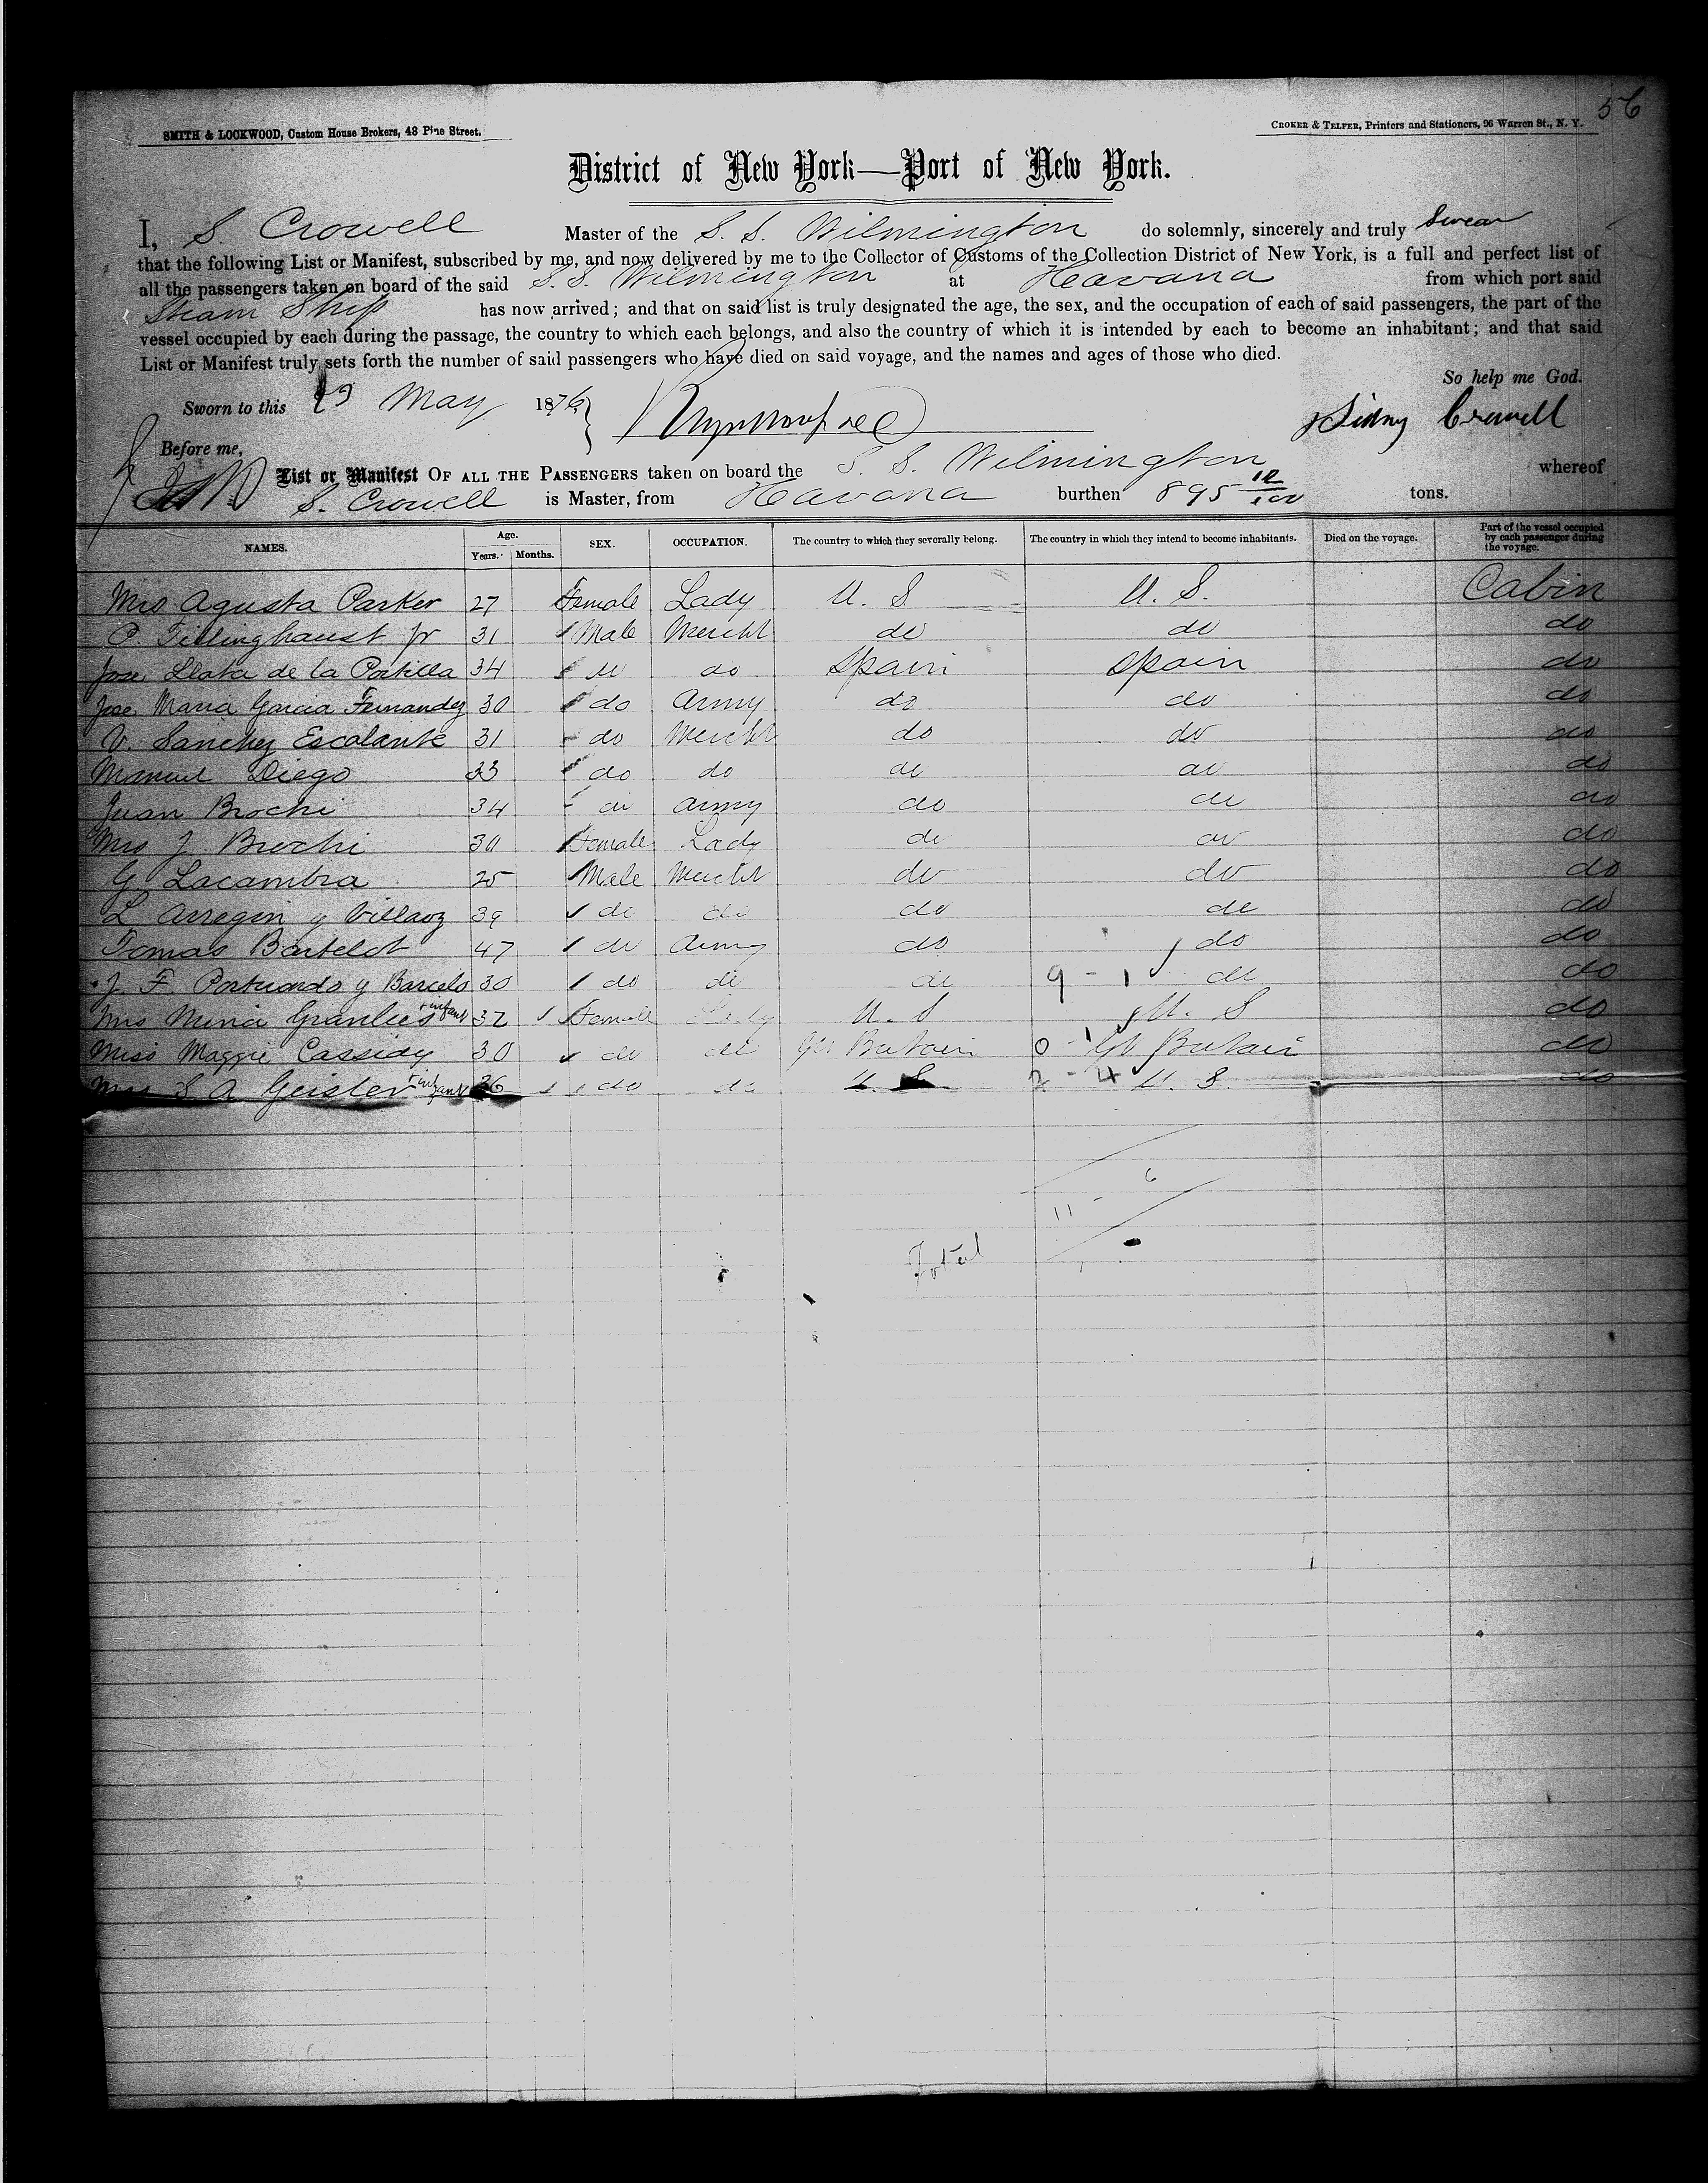 56
SMITH & LOCKWOOD, Custom House Brokers, 48 Pine Street.
CROKER & TELFER, Printers and Stationers, 96 Warren St., N. Y.
District of New York—Port of New York.
I, S. Crowell Master of the S. S. Wilmington do solemnly, sincerely and truly Swear
that the following List or Manifest, subscribed by me, and now delivered by me to the Collector of Customs of the Collection District of New York, is a full and perfect list of
all the passengers taken on board of the said S. S. Wilmington at Havana from which port said
Steam Ship has now arrived; and that on said list is truly designated the age, the sex, and the occupation of each of said passengers, the part of the
vessel occupied by each during the passage, the country to which each belongs, and also the country of which it is intended by each to become an inhabitant; and that said
List or Manifest truly sets forth the number of said passengers who have died on said voyage, and the names and ages of those who died.
So help me God.
Sworn to this 29 May 1876
Sidney Crowell
Before me,
List or Manifest OF ALL THE PASSENGERS taken on board the S. S. Wilmington whereof
S. Crowell is Master, from Havana burthen 895 12/100 tons.
NAMES. Age. Years. Months. SEX. OCCUPATION. The country to which they severally belong. The country in which they intend to become inhabitants. Died on the voyage. Part of the vessel occupied by each passenger during the voyage.
Mrs Agusta Parker 27 Female Lady U. S U. S. Cabin
P. Tillinghaust Jr 31 Male Mercht do do do
Jose Llata de la Portilla 34 do do Spain Spain do
Jose Maria Garcia Fernandez 30 do Army do do do
V. Sanchez Escalante 31 do Mercht do do do
Manuel Diego 33 do do do do do
Juan Brochi 34 do Army do do do
Mrs J. Brochi 30 Female Lady do do do
G Lacambra 25 Male Mercht do do do
L Arregin y Villaoz 39 do do do do do
Tomas Bartelot 47 do Army do do do
J. F. Portuondo y Barcelo 30 do do do 9 - 1 do do
Mrs Mina Granlees + infant 32 Female Lady U. S U. S do
Miss Maggie Cassidy 30 do do Gt Britain 0 - 1 Gt Britain do
Mrs S A Geisler + infant 36 do do U. S 2 - 4 U. S. do
11 - 6
Total